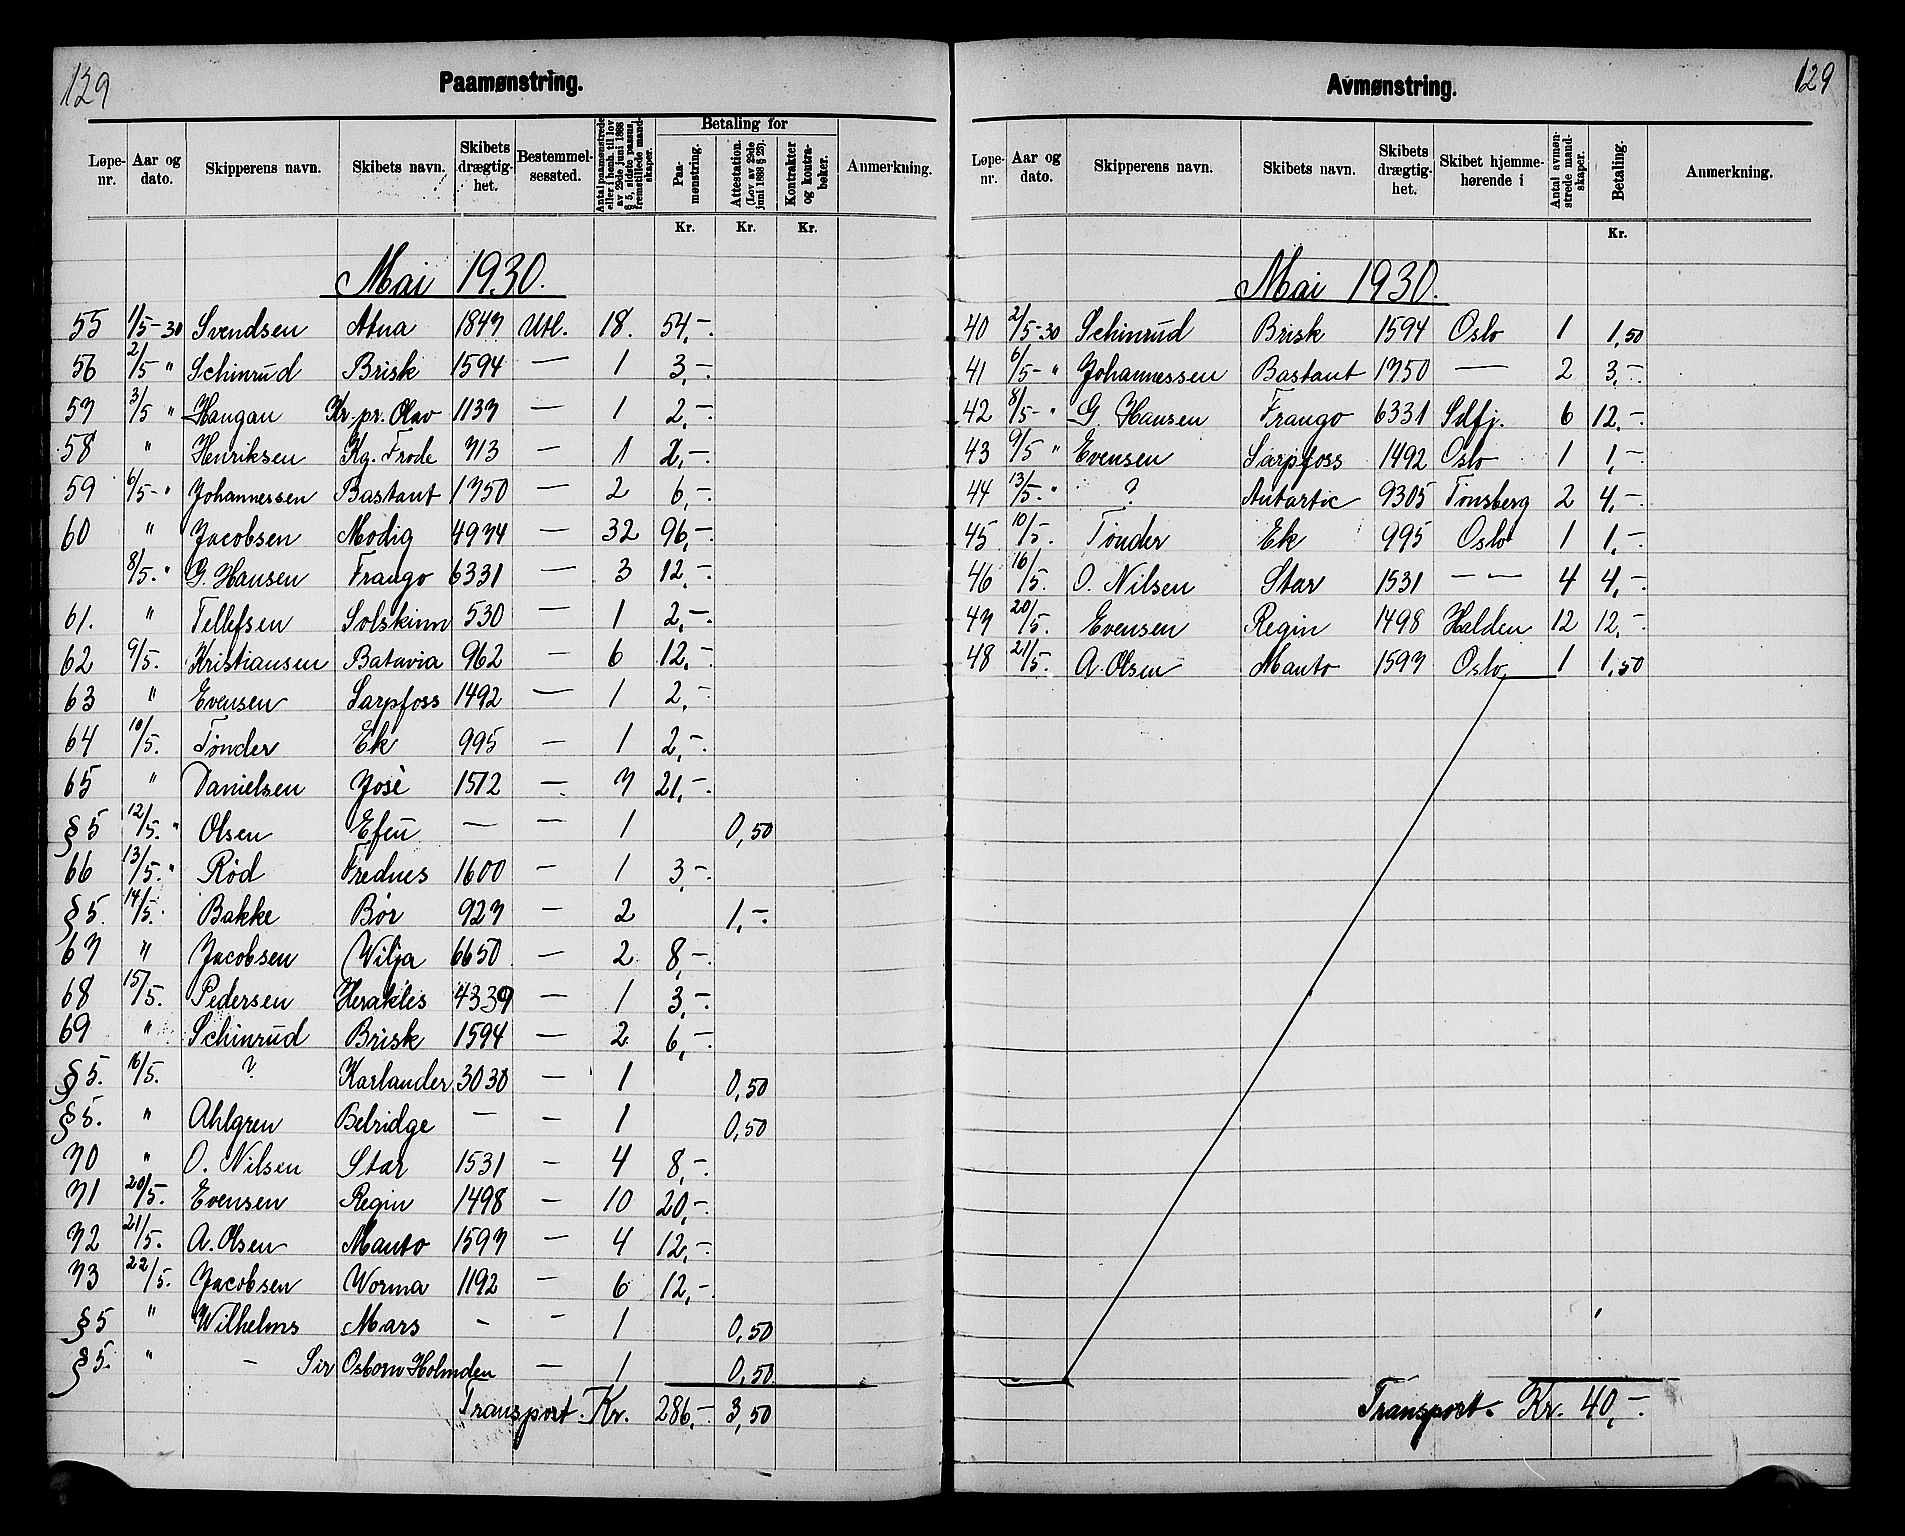 129
Paamønstring.
Løpe-nr. Aar og dato. Skipperens navn. Skibets navn. Skibets drægtig-het. Bestemmel-sessted. Antal paamønstrede eller i henh. til lov av 29de juni 1888 § 5, sidste passus, fremstillede mand-skaper. Betaling for Paa-mønstring. Attestation. (Lov av 29de juni 1888 § 23). Kontrakter og kontra-bøker. Anmerkning.
Kr. Kr. Kr.
Mai 1930.
55 1/5-30 Svendsen Atna 1847 Utl. 18. 54,-.
56 2/5- " Schinrud Brisk 1594 — 1 3,-.
57 3/5 " Haugan Kr.pr. Olav 1137 — 1 2,-.
58 " Henriksen Kg. Frode 713 — 1 2,-.
59 6/5- " Johannessen Bastant 1750 — 2 6,-.
60 " Jacobsen Modig 4974 — 32 96,-.
8/5. " G. Hansen Frango 6331 — 3 12,-.
61. " Tellefsen Solskinn 530 — 1 2,-.
62 9/5. Kristiansen Batavia 962 — 6 12,-.
63 " Evensen Sarpfoss 1492 — 1 2,-.
64 10/5. Tønder Ek 995 — 1 2,-.
65 " Danielsen José 1512 — 7 21,-.
§5 12/5. " Olsen Efeu — — 1 0,50
66 13/5. " Rød Frednes 1600 — 1 3,-.
§5. 14/5. Bakke Bør 927 — 2 1,-.
67 " Jacobsen Wilja 6650 — 2 8,-.
68 15/5. Pedersen Herakles 4339 — 1 3,-.
69 " Schinrud Brisk 1594 — 2 6,-.
§5. 16/5. ? Karlander 3030 — 1 0,50
§5. " Ahlgren Belridge — — 1 0,50
70 " O. Nilsen Star 1531 — 4 8,-.
71 20/5. Evensen Regin 1498 — 10 20,-.
72 21/5. A. Olsen Manto 1597 — 4 12,-.
73 22/5. Jacobsen Worma 1192 — 6 12,-.
§5 " Wilhelms Mars - - 1 0,50
§5. " — Sir Osborn Holmden — 1 0,50
Transport. Kr. 286,- 3,50
129
Avmønstring.
Løpe-nr. Aar og dato. Skipperens navn. Skibets navn. Skibets drægtig-het. Skibet hjemme-hørende i Antal avmøn-strede mand-skaper. Betaling. Anmerkning.
Kr.
Mai 1930.
40 2/5-30 Schinrud Brisk 1594 Oslo 1 1,50
41 6/5- " Johannessen Bastant 1750 — 2 3,-.
42 8/5- " G. Hansen Frango 6331 Sdfj. 6 12,-.
43 9/5 " Evensen Sarpfoss 1492 Oslo 1 1,-.
44 13/5. " ? Antartic 9305 Tønsberg 2 4,-.
45 10/5. Tønder Ek 995 Oslo 1 1,-.
46 16/5. O. Nilsen Star 1531 — — 4 4,-.
47 20/5. Evensen Regin 1498 Halden 12 12,-.
48 21/5. A. Olsen Manto 1597 Oslo 1 1,50
Transport. Kr. 40,-.